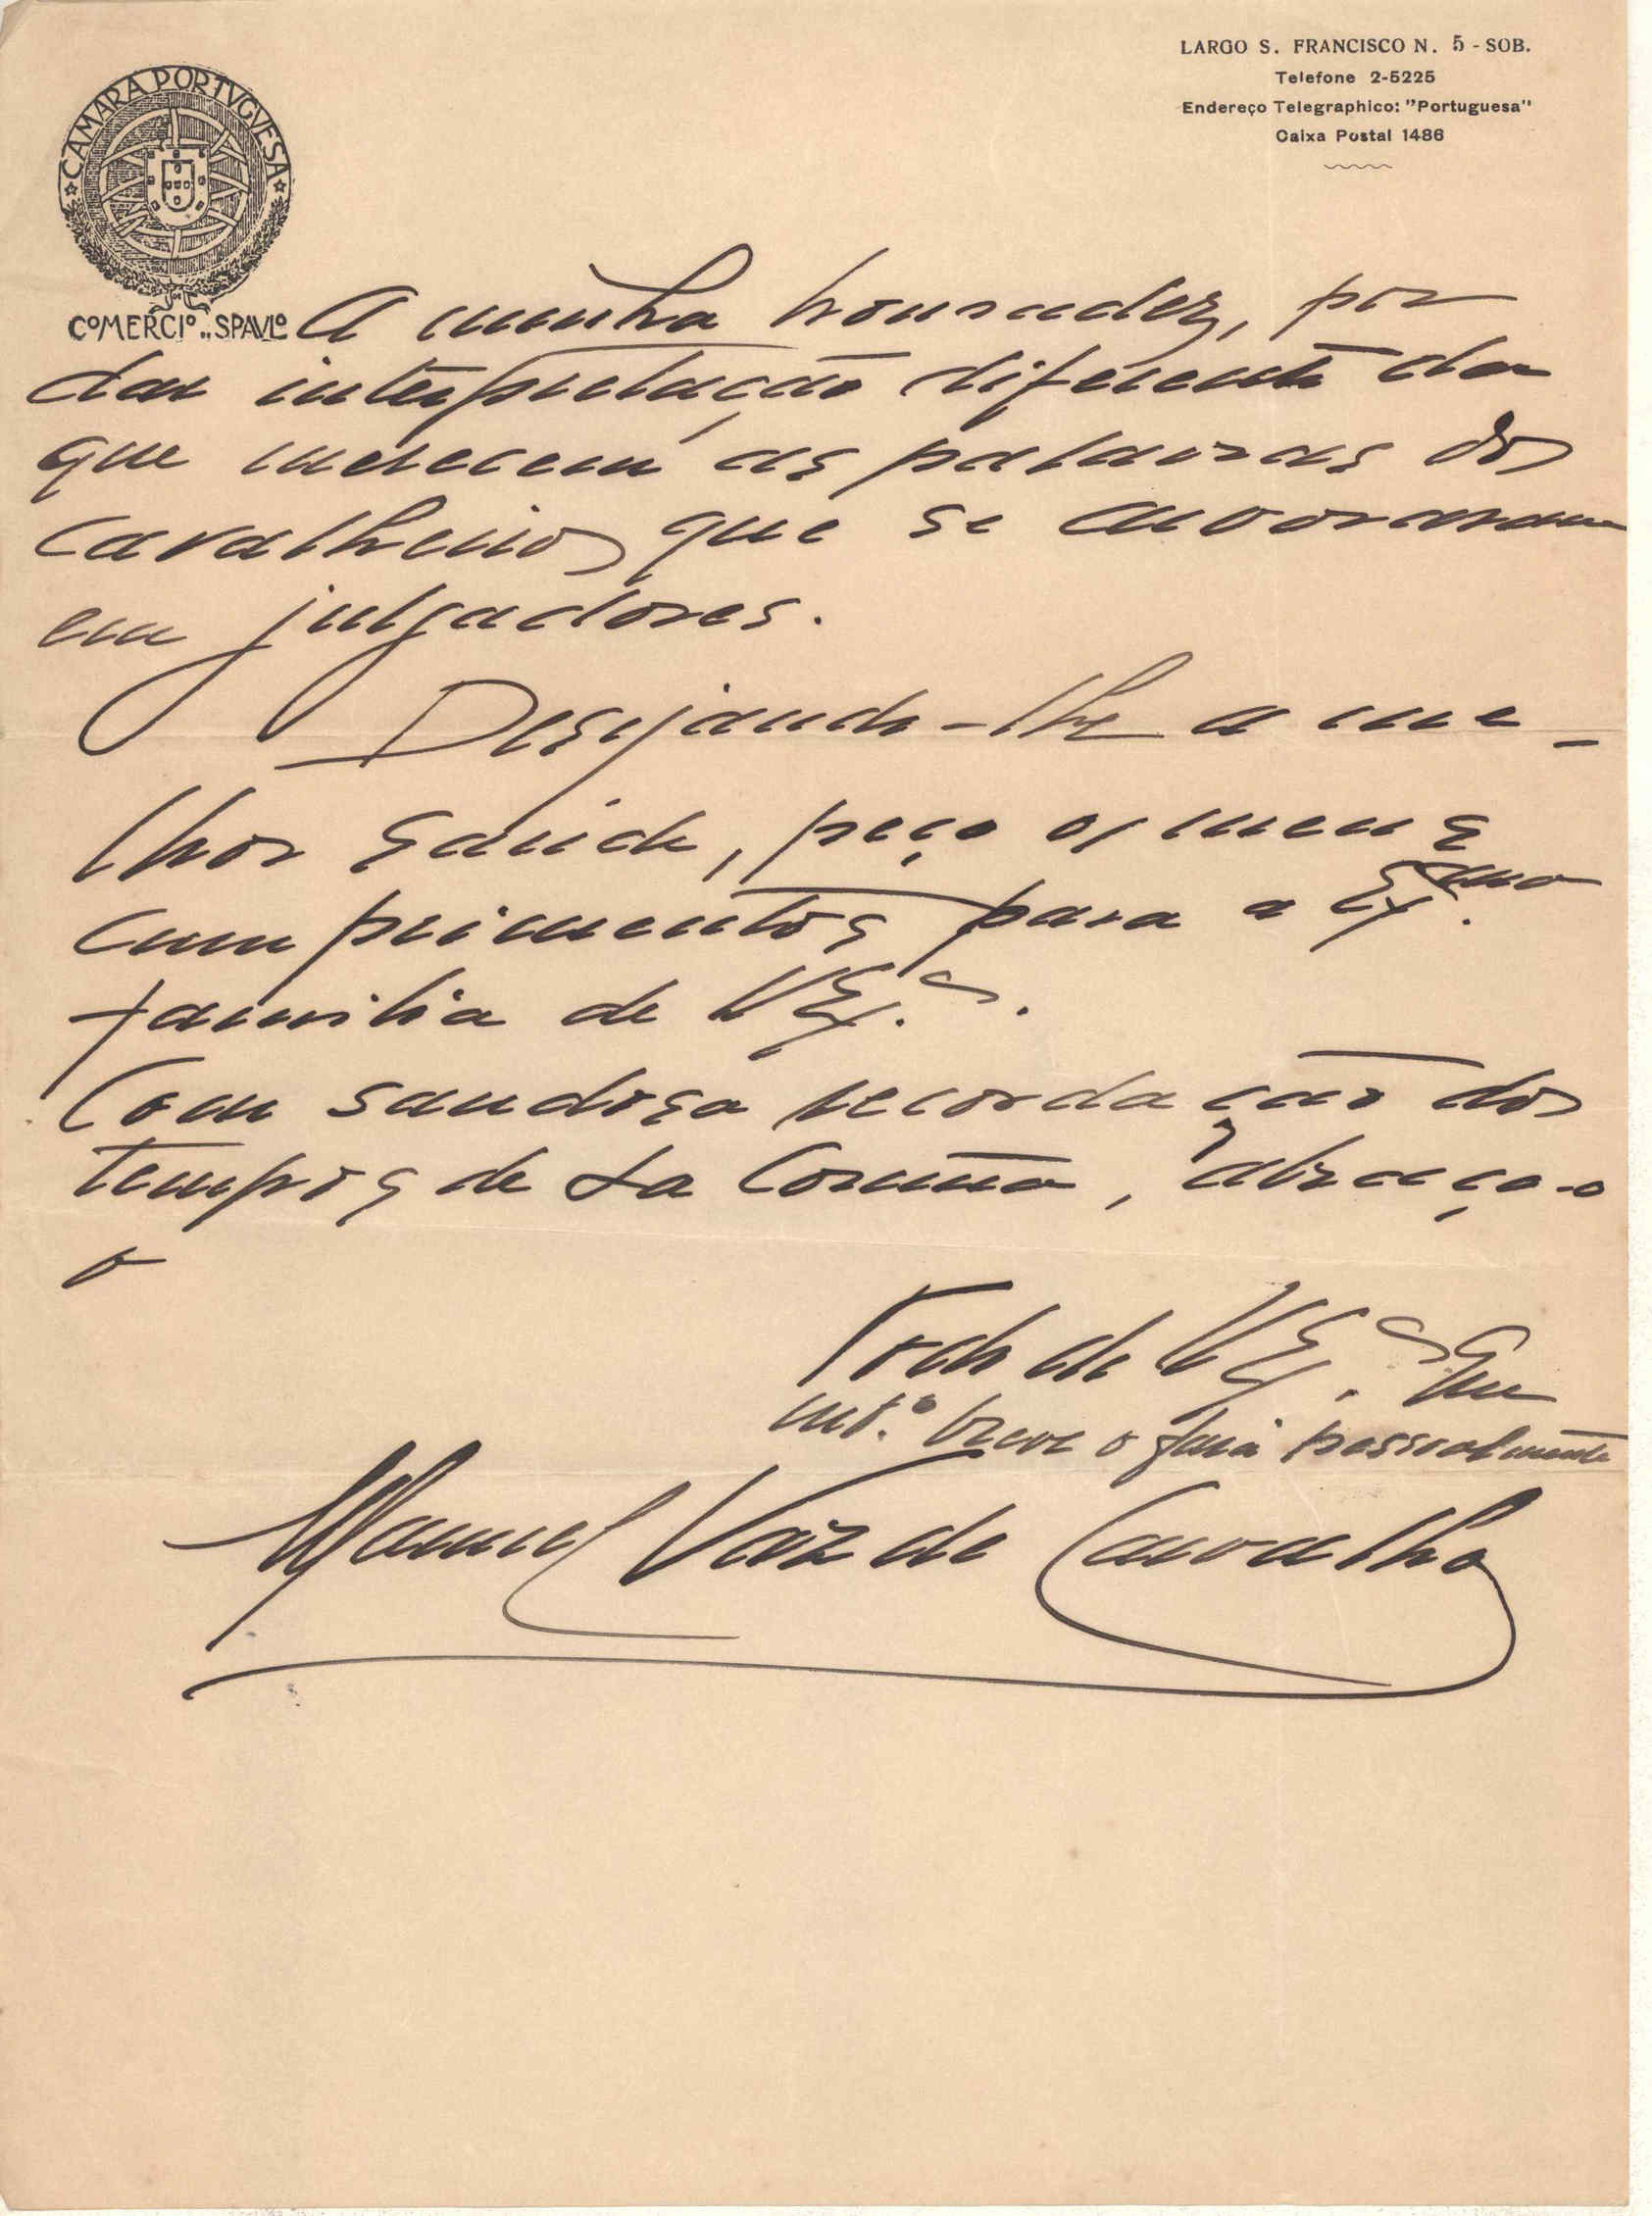 LARGO S. FRANCISCO N. 5 - SOB.
Telefone 2-5225
Endereço Telegraphico: "Portuguesa"
Caixa Postal 1486
CAMARA PORTVGVESA
COMERCIO S PAVLO
A minha honradez, por
dar interpretação diferente da
que merecem as palavras dos
cavalheiros que se arvoraram
em julgadores.
Desejando-lhe a me-
lhor saúde, peço os meus
cumprimentos para a Exma.
familia de V Ex.a.
Com saudosa recordação dos
tempos de La Coruña, abraço-o
o
Todo de V Ex.a Em
mt.º breve o fará pessoalmente
Manuel Vaz de Carvalho